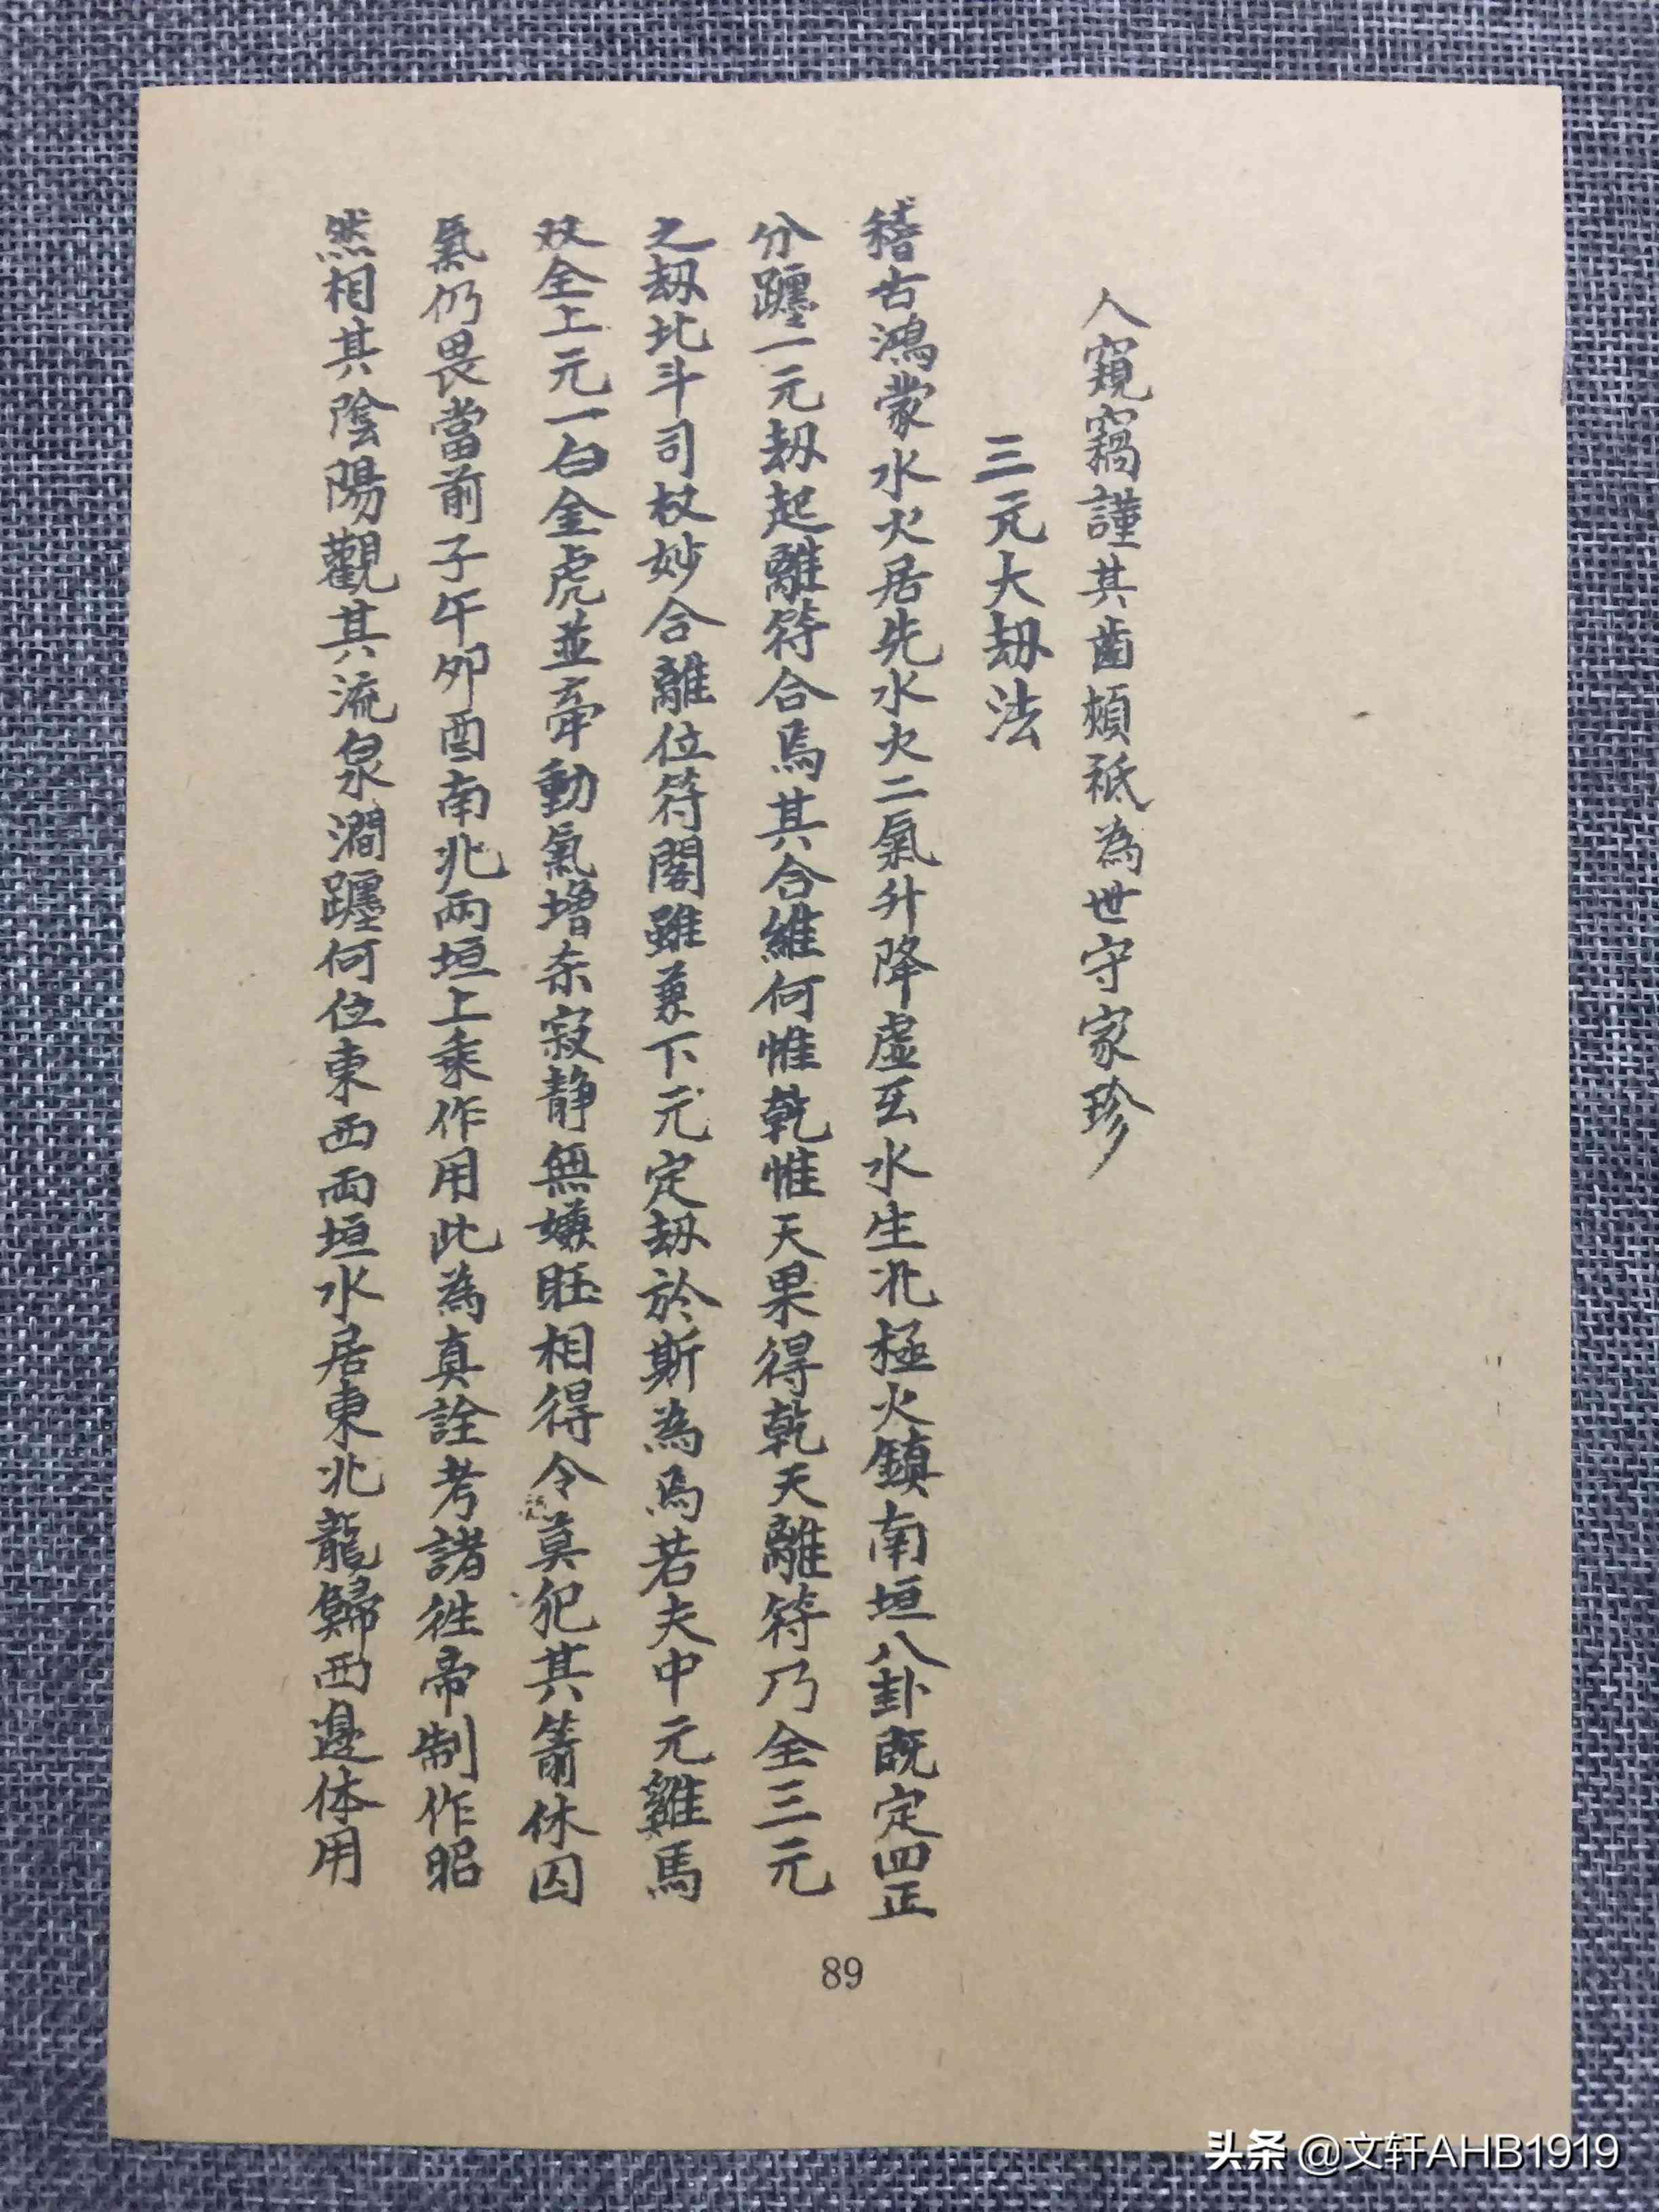 人窺竊謹其齒頰祗為世守家珍
三元大刼法
稽古鴻蒙水火居先水火二氣升降虛互水生北極火鎮南垣八卦既定四正
分躔一元刼起離符合焉其合維何惟乾惟天果得乾天離符乃全三元
之刼北斗司权妙合離位符閣雖兼下元定刼於斯為焉若夫中元雞馬
双全上元一白金虎並牽動氣增柰寂静無嫌旺相得令莫犯其箭休囚
氣仍畏當前子午夘酉南北兩垣上乘作用此為真詮考諸徃帝制作昭
然相其陰陽觀其流泉澗躔何位東西兩垣水居東北龍歸西邊体用
89
头条 @文轩AHB1919